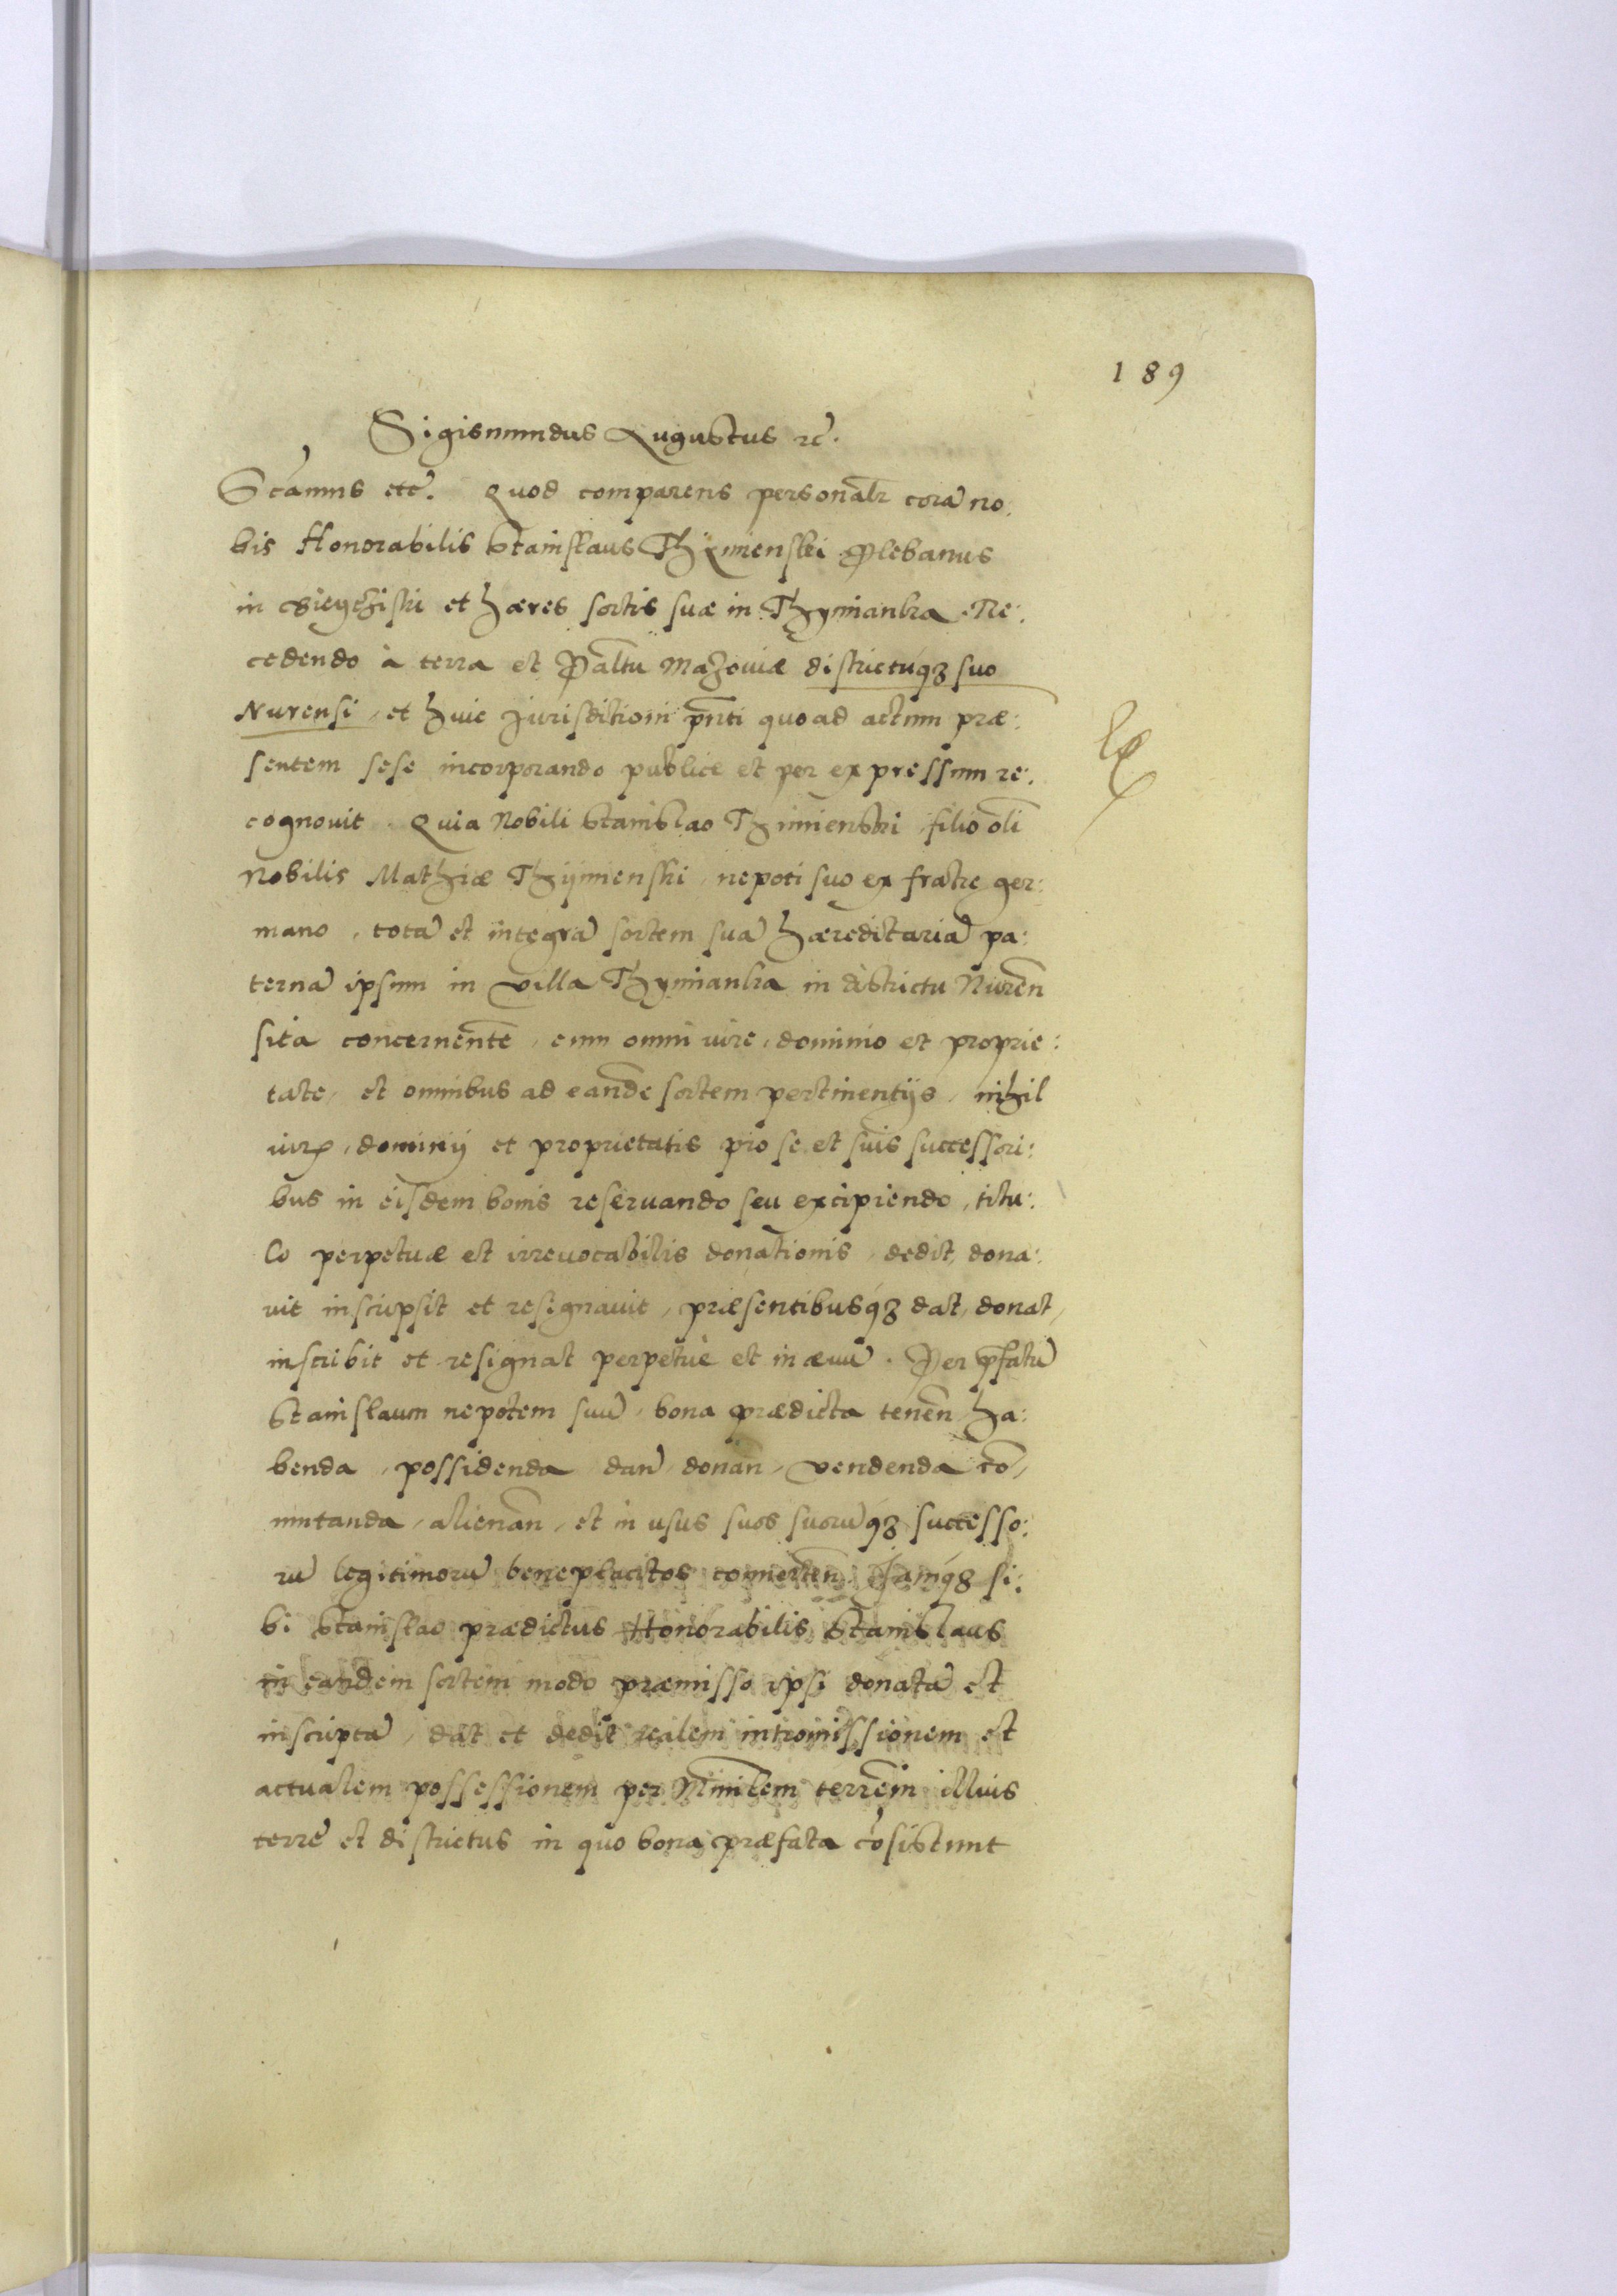 189
Sigismundus Augustus rc̃.
Scãmus etc̃. Quod comparens personalr̃ corã no:
bis Honorabilis Stanislaus Thxmienski Plebanus
in et hæres sortis suæ in Thymianka. Re:
cedendo à terra et Palt̃u Mazoviæ districtúq3 suo
Nurensi, et huic Jurisditioni pñti quo ad actum præ:
sentem sese incorporando publice et per expressum re:
cognovit. Quia Nobili Stanislao Thimienski filio olĩ
Nobilis Mathiæ Thÿmienski, nepoti suo ex fratre ger:
mano, totã et integrã sortem suã hæreditariã pa:
ternã ipsum in villa Thymianka in districtu Nureñ
sitã concernente, cum omni iure, dominio et proprie:
tate, et omnibus ad eandẽ sortem pertinentijs, nihil
iuris, dominij et proprietatis pro se et suis successori:
bus in eisdem bonis reservando seu excipiendo, titu:
lo perpetuæ et irrevocabilis donationis, dedit, dona:
vit inscripsit et resignavit, præsentibusq́3 dat, donat,
inscribit et resignat perpetuè et in ævũ. Per p̃fatũ
Stanislaum nepotem suũ, bona prædicta teneñ, ha:
benda, possidenda dañ donañ, vendenda cõ,
mutanda, alienañ, et in usus suos suorũq3 successo:
rũ legitimorũ beneplacitos converteñ. Jamq́3 si:
bi Stanislao prædictus Honorabilis Stanislaus
in eandem sortem modo præmisso ipsi donatã et
inscriptã, dat et dedit realem intromissionem et
actualem possessionem per Minilem terrem̃ illius
terre et districtus in quo bona præfata cõsistunt